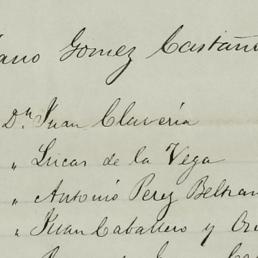 ano Gomez Castañ
Dn Juan Claveria
" Lucas de la Vega
" Antonio Perez Beltran
" Juan Caballero y